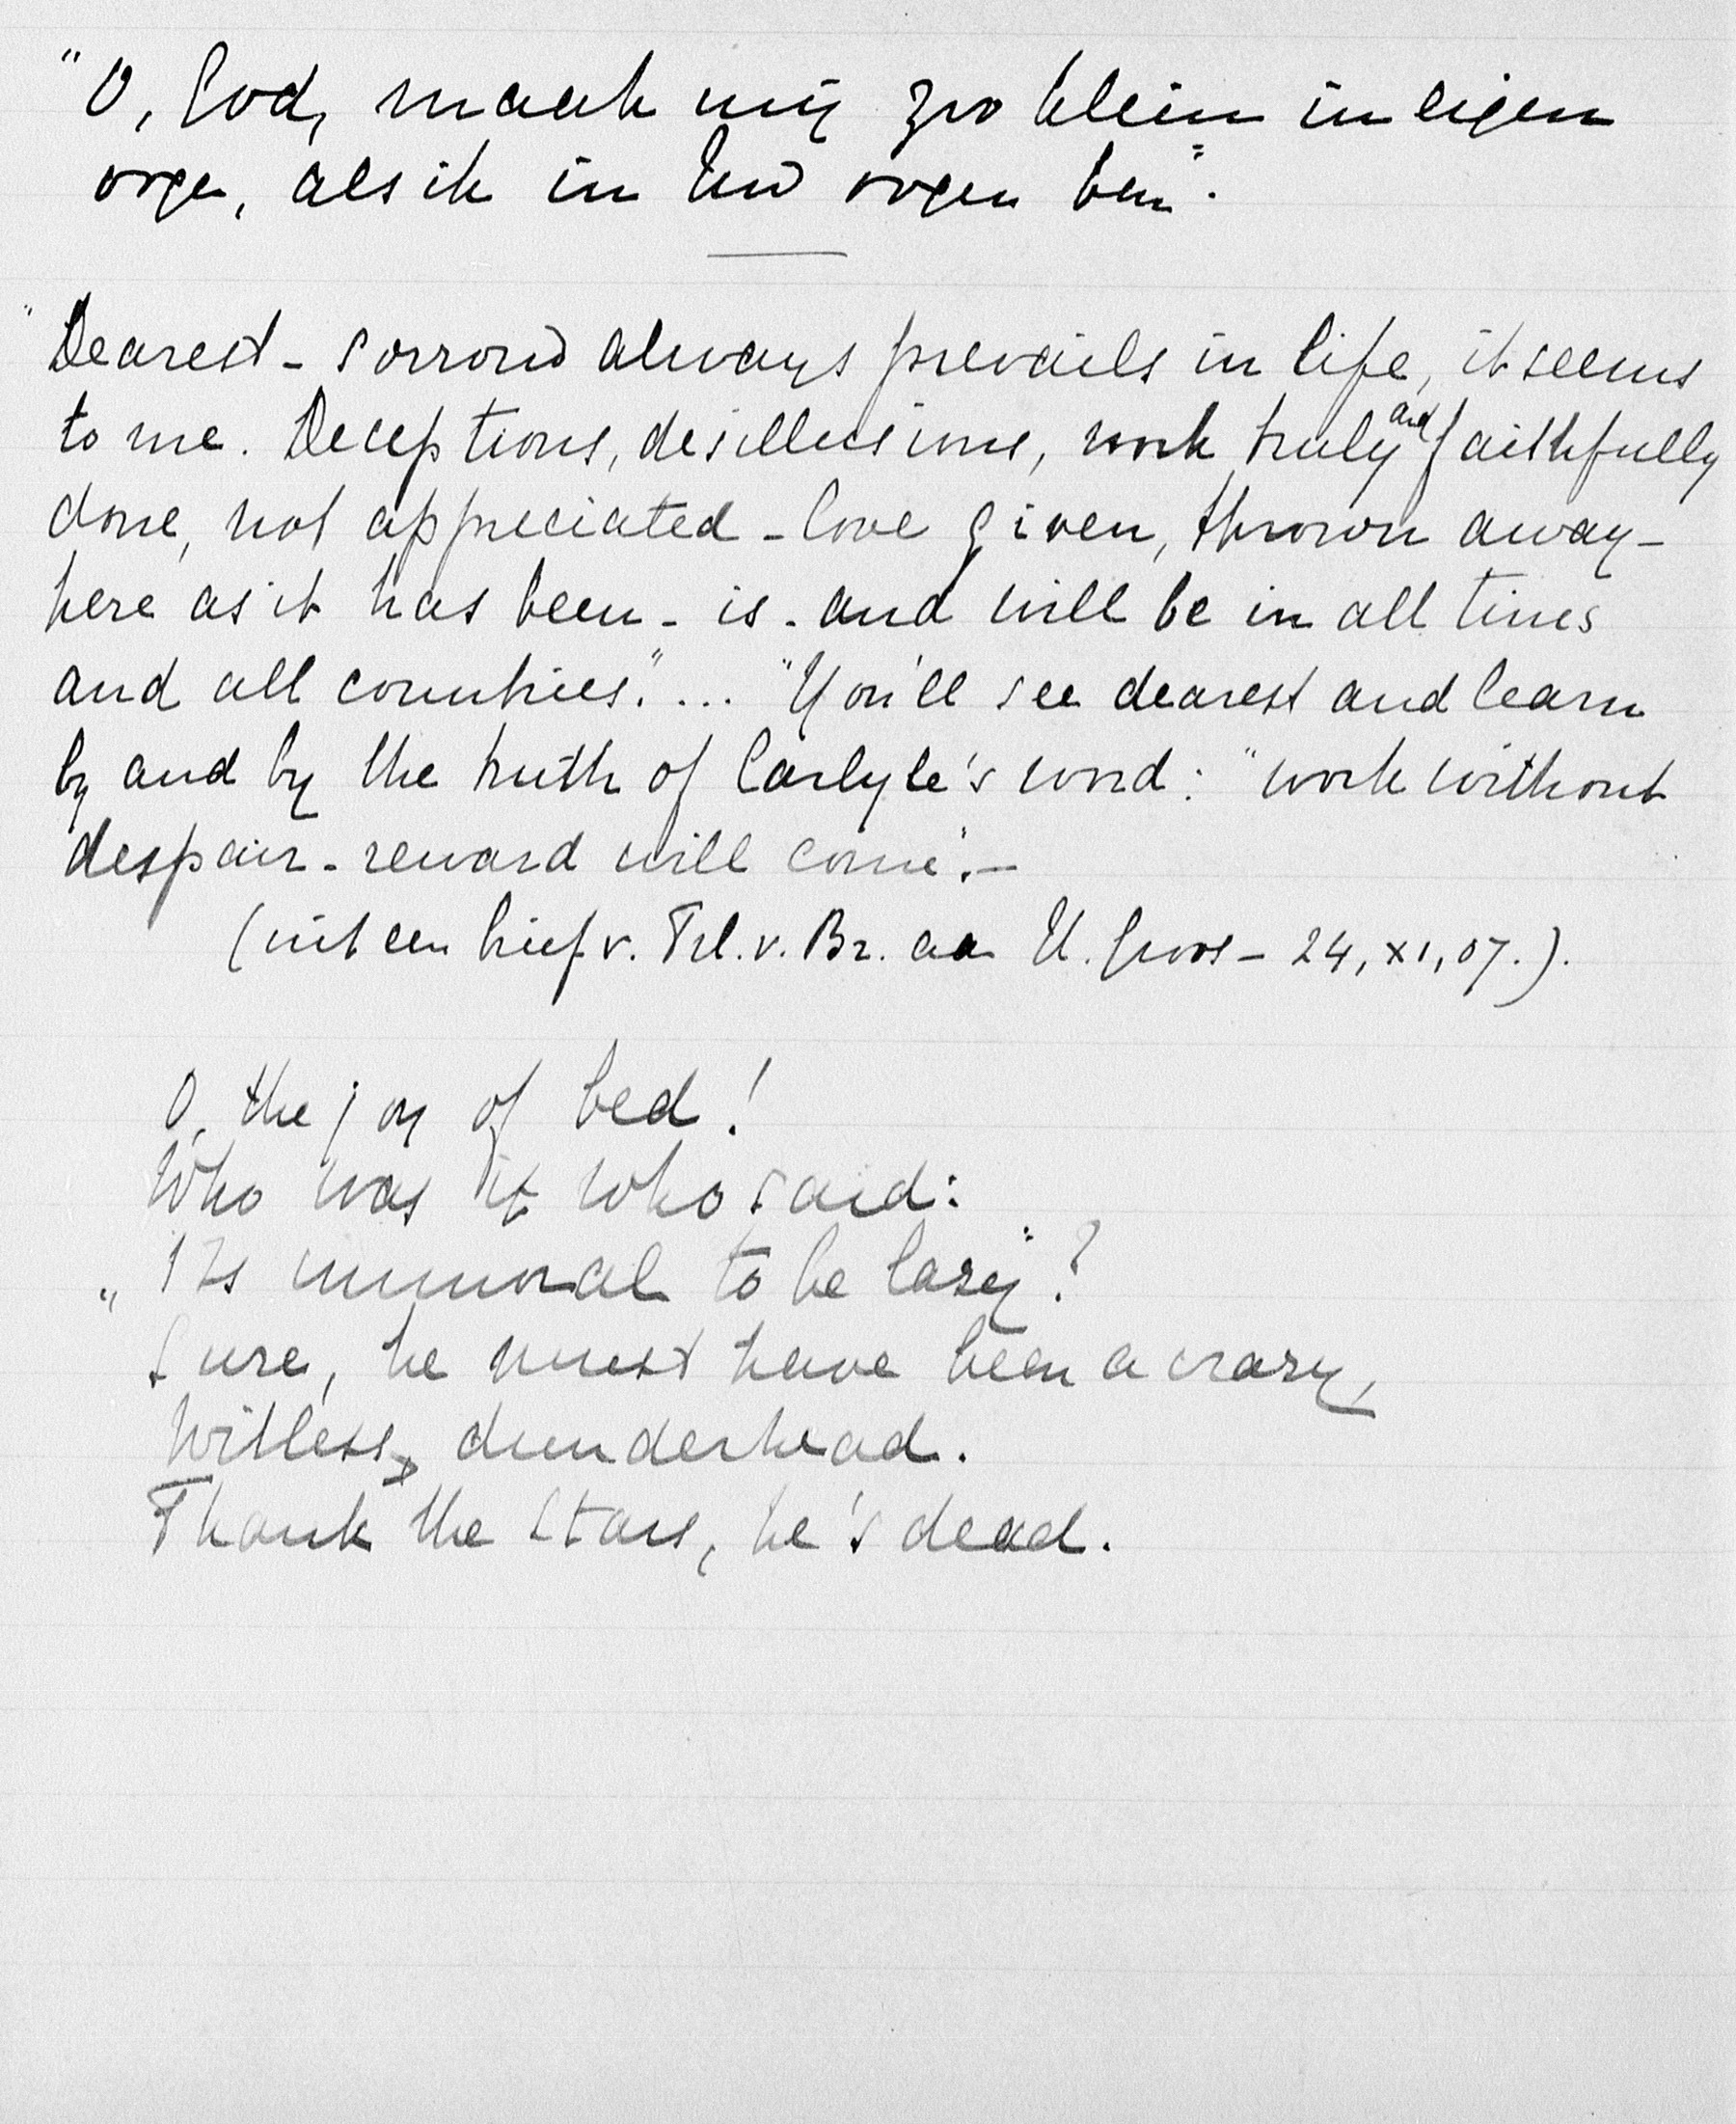 "O, God, maak mij zoo klein in eigen
ooge, als ik in Uw oogen ben".
"Dearest - sorrow always prevails in life, it seems
to me. Deceptions, desillusions, work truly and faithfully
done, not appreciated - love given, thrown away -
here as it has been - is - and will be in all times
and all countries." ... "You'll see dearest and learn
by and by the truth of Carlyle's word: "work without
despair - reward will come". -
(uit een brief v. v. Br. aan U. Groos - 24, XI, 07.).
O, the joy of bed!
Who was it who said:
„Its immoral to be lazy"?
Sure, he must have been a crazy,
Witless, dunderhead.
Thank the stars, he's dead.